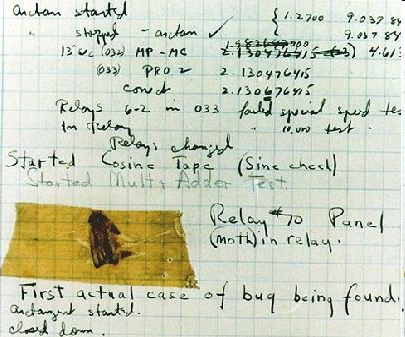 arctan started { 1.2700 9.037 84
" stopped - arctan ✓ 9.037 84
13" uc (032) MP - MC 4.613
(033) PRO 2 2.130476415
correct 2.130676415
Relays 6-2 in 033 failed special speed tes
In Relay " 10,000 test .
Relays changed
Started Cosine Tape (Sine check)
Started Mult + Adder Test
Relay #70 Panel
(moth) in relay.
First actual case of bug being found.
arctangent started.
closed down.